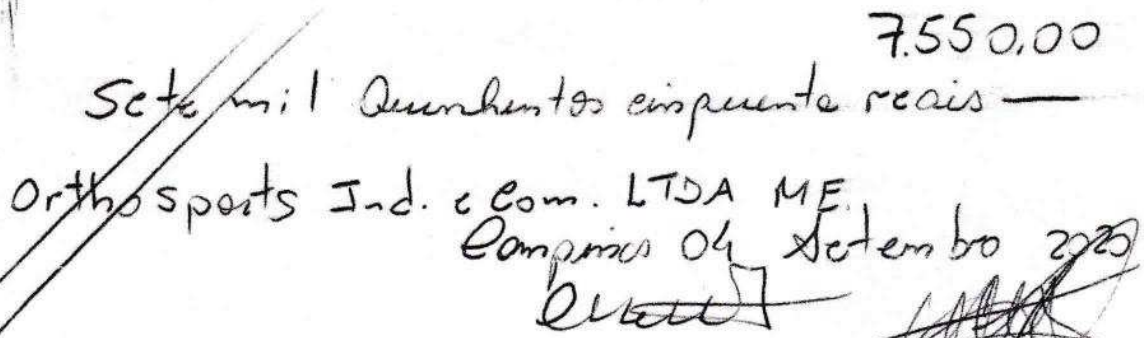 7.550,00
Sete mil Quinhentos cinquenta reais —
Orthosports Ind. e Com. LTDA ME.
Campinas 04 Setembro 2020